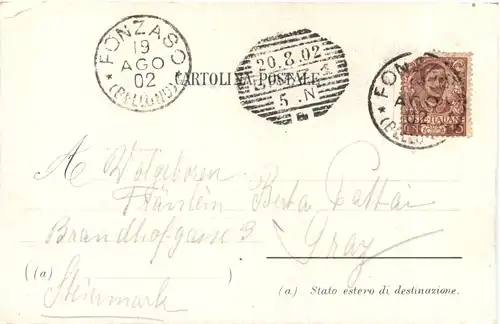 FONZASO
19
AGO
02
(BELLUNO)
20.8.02
5.N
CARTOLINA POSTALE
FON
AGO
(BELLUNO)
A Wolgeboren
Fräulein Berta Pattai
Brandhofgasse 3
Graz
(a)
Steiermark
(a) Stato estero di destinazione.